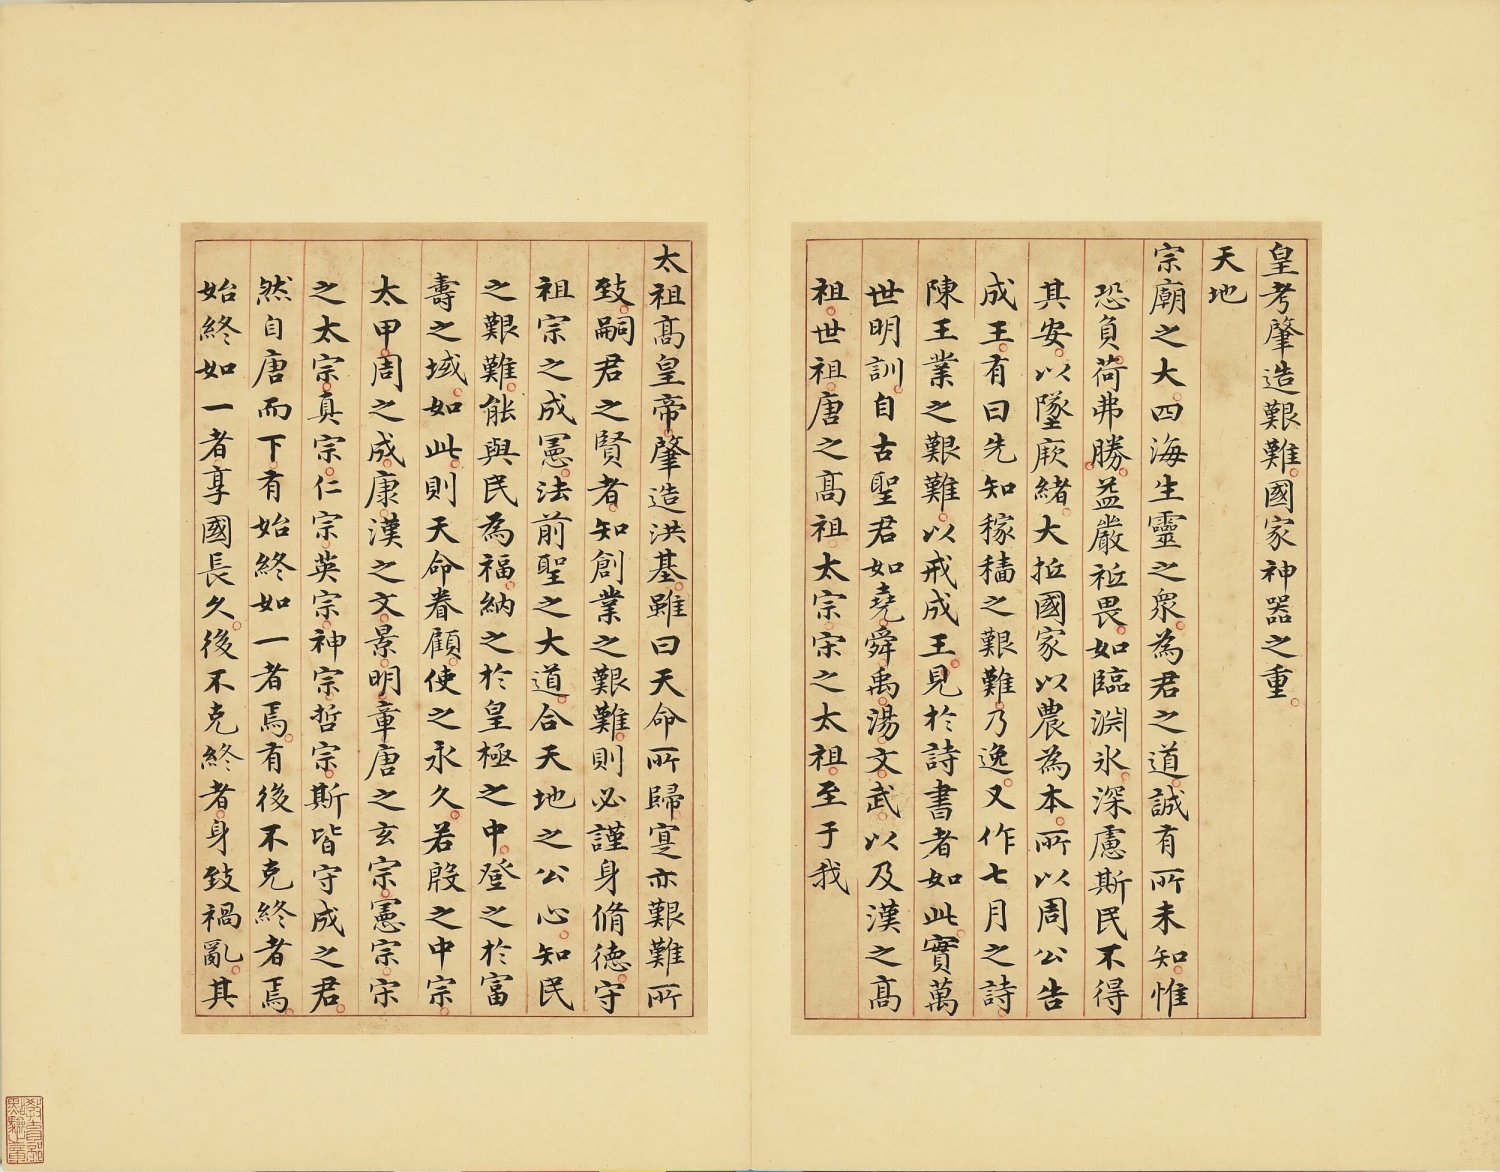 皇考肇造艱難國家神器之重
天地
宗廟之大四海生靈之衆為君之道誠有所未知惟
恐負荷弗勝益嚴祗畏如臨淵氷深慮斯民不得
其安以墜厥緒大抵國家以農為本所以周公告
成王有曰先知稼穡之艱難乃逸又作七月之詩
陳王業之艱難以戒成王見於詩書者如此實萬
世明訓自古聖君如堯舜禹湯文武以及漢之高
祖世祖唐之高祖太宗宋之太祖至于我
太祖高皇帝肇造洪基雖曰天命所歸寔亦艱難所
致嗣君之賢者知創業之艱難則必謹身脩德守
祖宗之成憲法前聖之大道合天地之公心知民
之艱難能與民為福納之於皇極之中登之於富
壽之域如此則天命眷顧使之永久若殷之中宗
太甲周之成康漢之文景明章唐之玄宗憲宗宋
之太宗真宗仁宗英宗神宗哲宗斯皆守成之君
然自唐而下有始終如一者焉有後不克終者焉
始終如一者享國長久後不克終者身致禍亂其